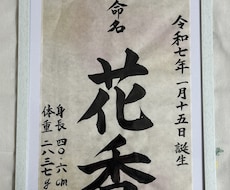 令和七年一月十五日誕生
命名
花香
身長 四〇.六cm
体重 二八三七g